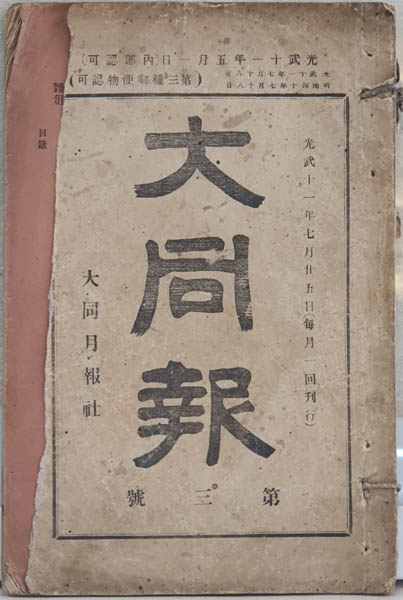 光武十一年五月一日(內部認可)
光武十一年七月十八日
明治四十年七月十八日
(第三種郵便物認可)
光武十一年七月廿五日(每月 回刊行)
大同報
大同月報社
第三號
雜俎
目錄